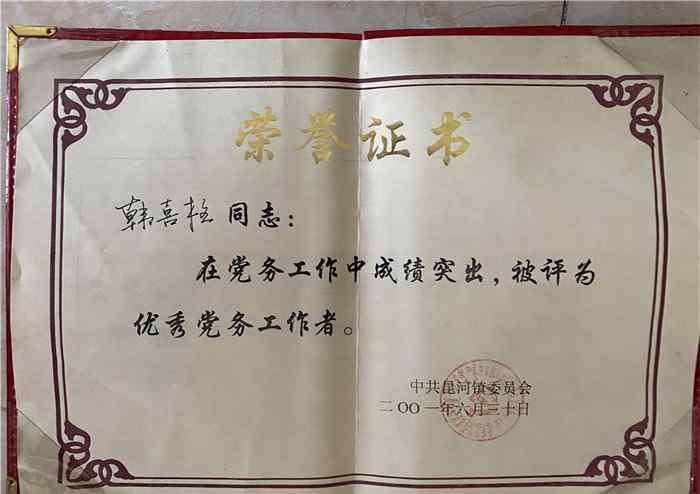 荣誉证书
韩喜栓 同志：
在党务工作中成绩突出，被评为
优秀党务工作者。
中共昆河镇委员会
二〇〇一年六月三十日